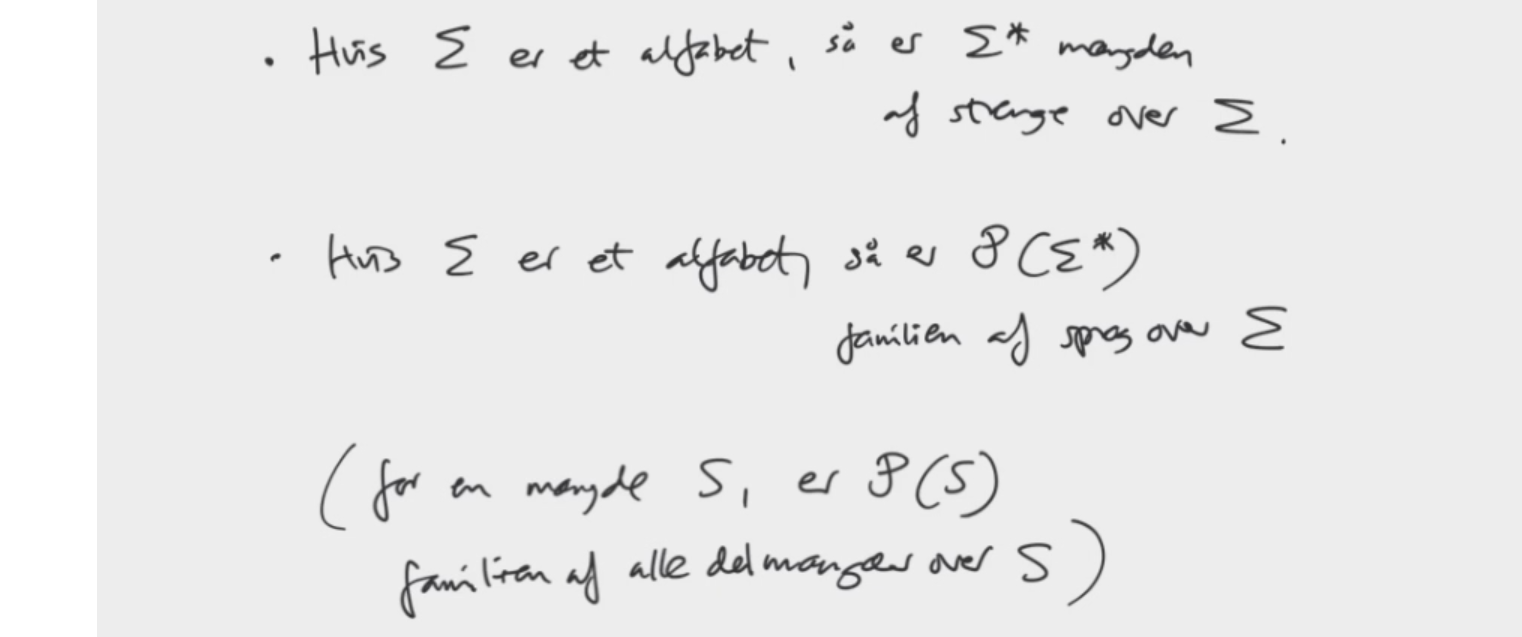 • Hvis Σ er et alfabet, så er Σ* mængden
af strenge over Σ.
• Hvis Σ er et alfabet, så er P(Σ*)
familien af sprog over Σ
(for en mængde S, er P(S)
familien af alle delmængder over S)